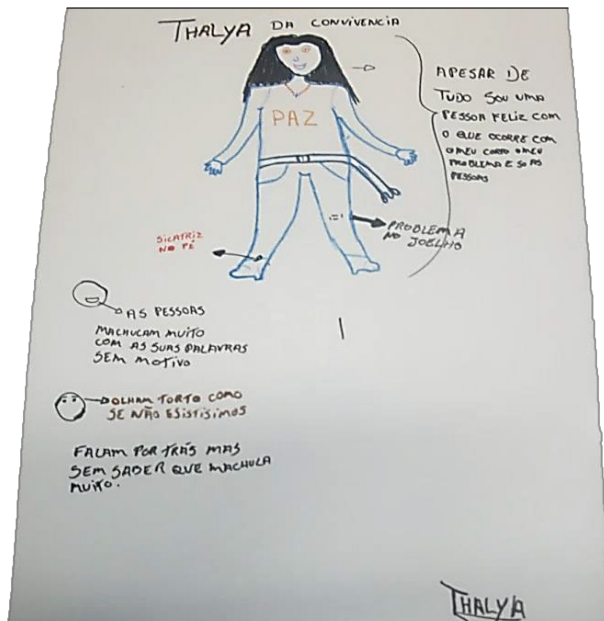 THALYA DA CONVIVENCIA
PAZ
APESAR DE
TUDO SOU UMA
PESSOA FELIZ COM
O QUE OCORRE COM
O MEU CORPO O MEU
PROBLEMA E SO AS
PESSOAS
PROBLEMA
NO JOELHO
SICATRIZ
NO PÉ
AS PESSOAS
MACHUCAM MUITO
COM AS SUAS PALAVRAS
SEM MOTIVO
OLHAM TORTO COMO
SE NÃO ESISTISIMOS
FALAM POR TRÁS MAS
SEM SABER QUE MACHULA
MUITO.
THALYA